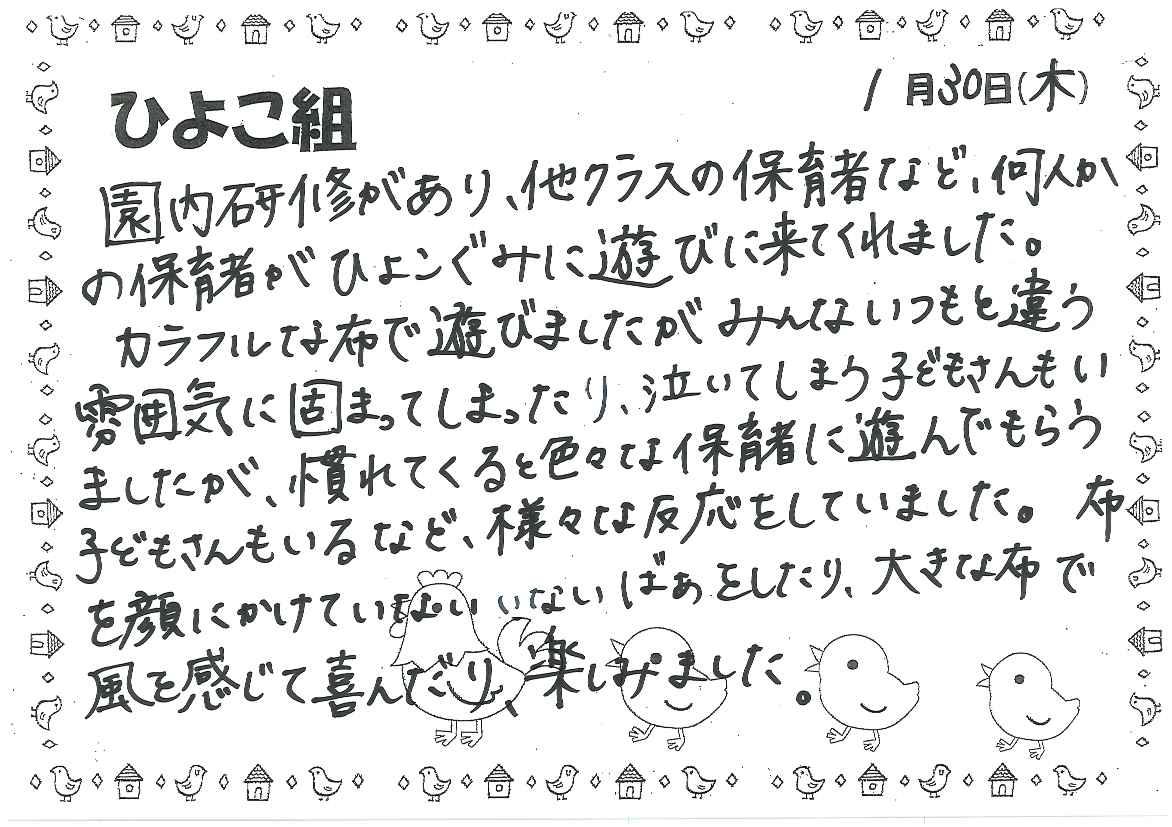 ひよこ組
1月30日(木)
園内研修があり、他クラスの保育者など、何人か
の保育者がひよこぐみに遊びに来てくれました。
カラフルな布で遊びましたがみんないつもと違う
雰囲気に固まってしまったり、泣いてしまう子どもさんもい
ましたが、慣れてくると色々な保育者に遊んでもらう
子どもさんもいるなど、様々な反応をしていました。布
を顔にかけていないいないばぁをしたり、大きな布で
風を感じて喜んだり、楽しみました。